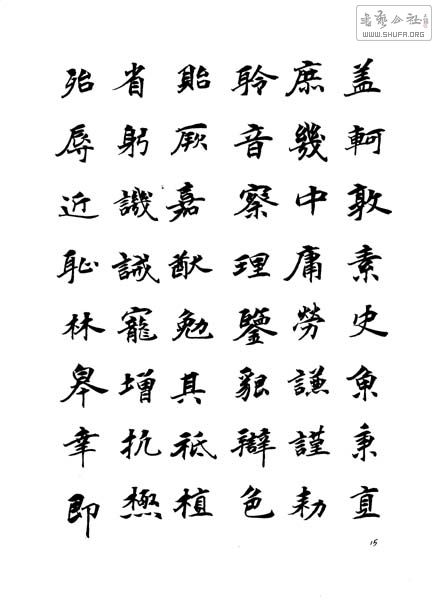 盖軻敦素史魚秉直
庶幾中庸勞謙謹勅
聆音察理鑒貌辯色
貽厥嘉猷勉其祗植
省躬譏誡寵增抗極
殆辱近恥林皋幸即
15
書藝公社
WWW.SHUFA.ORG